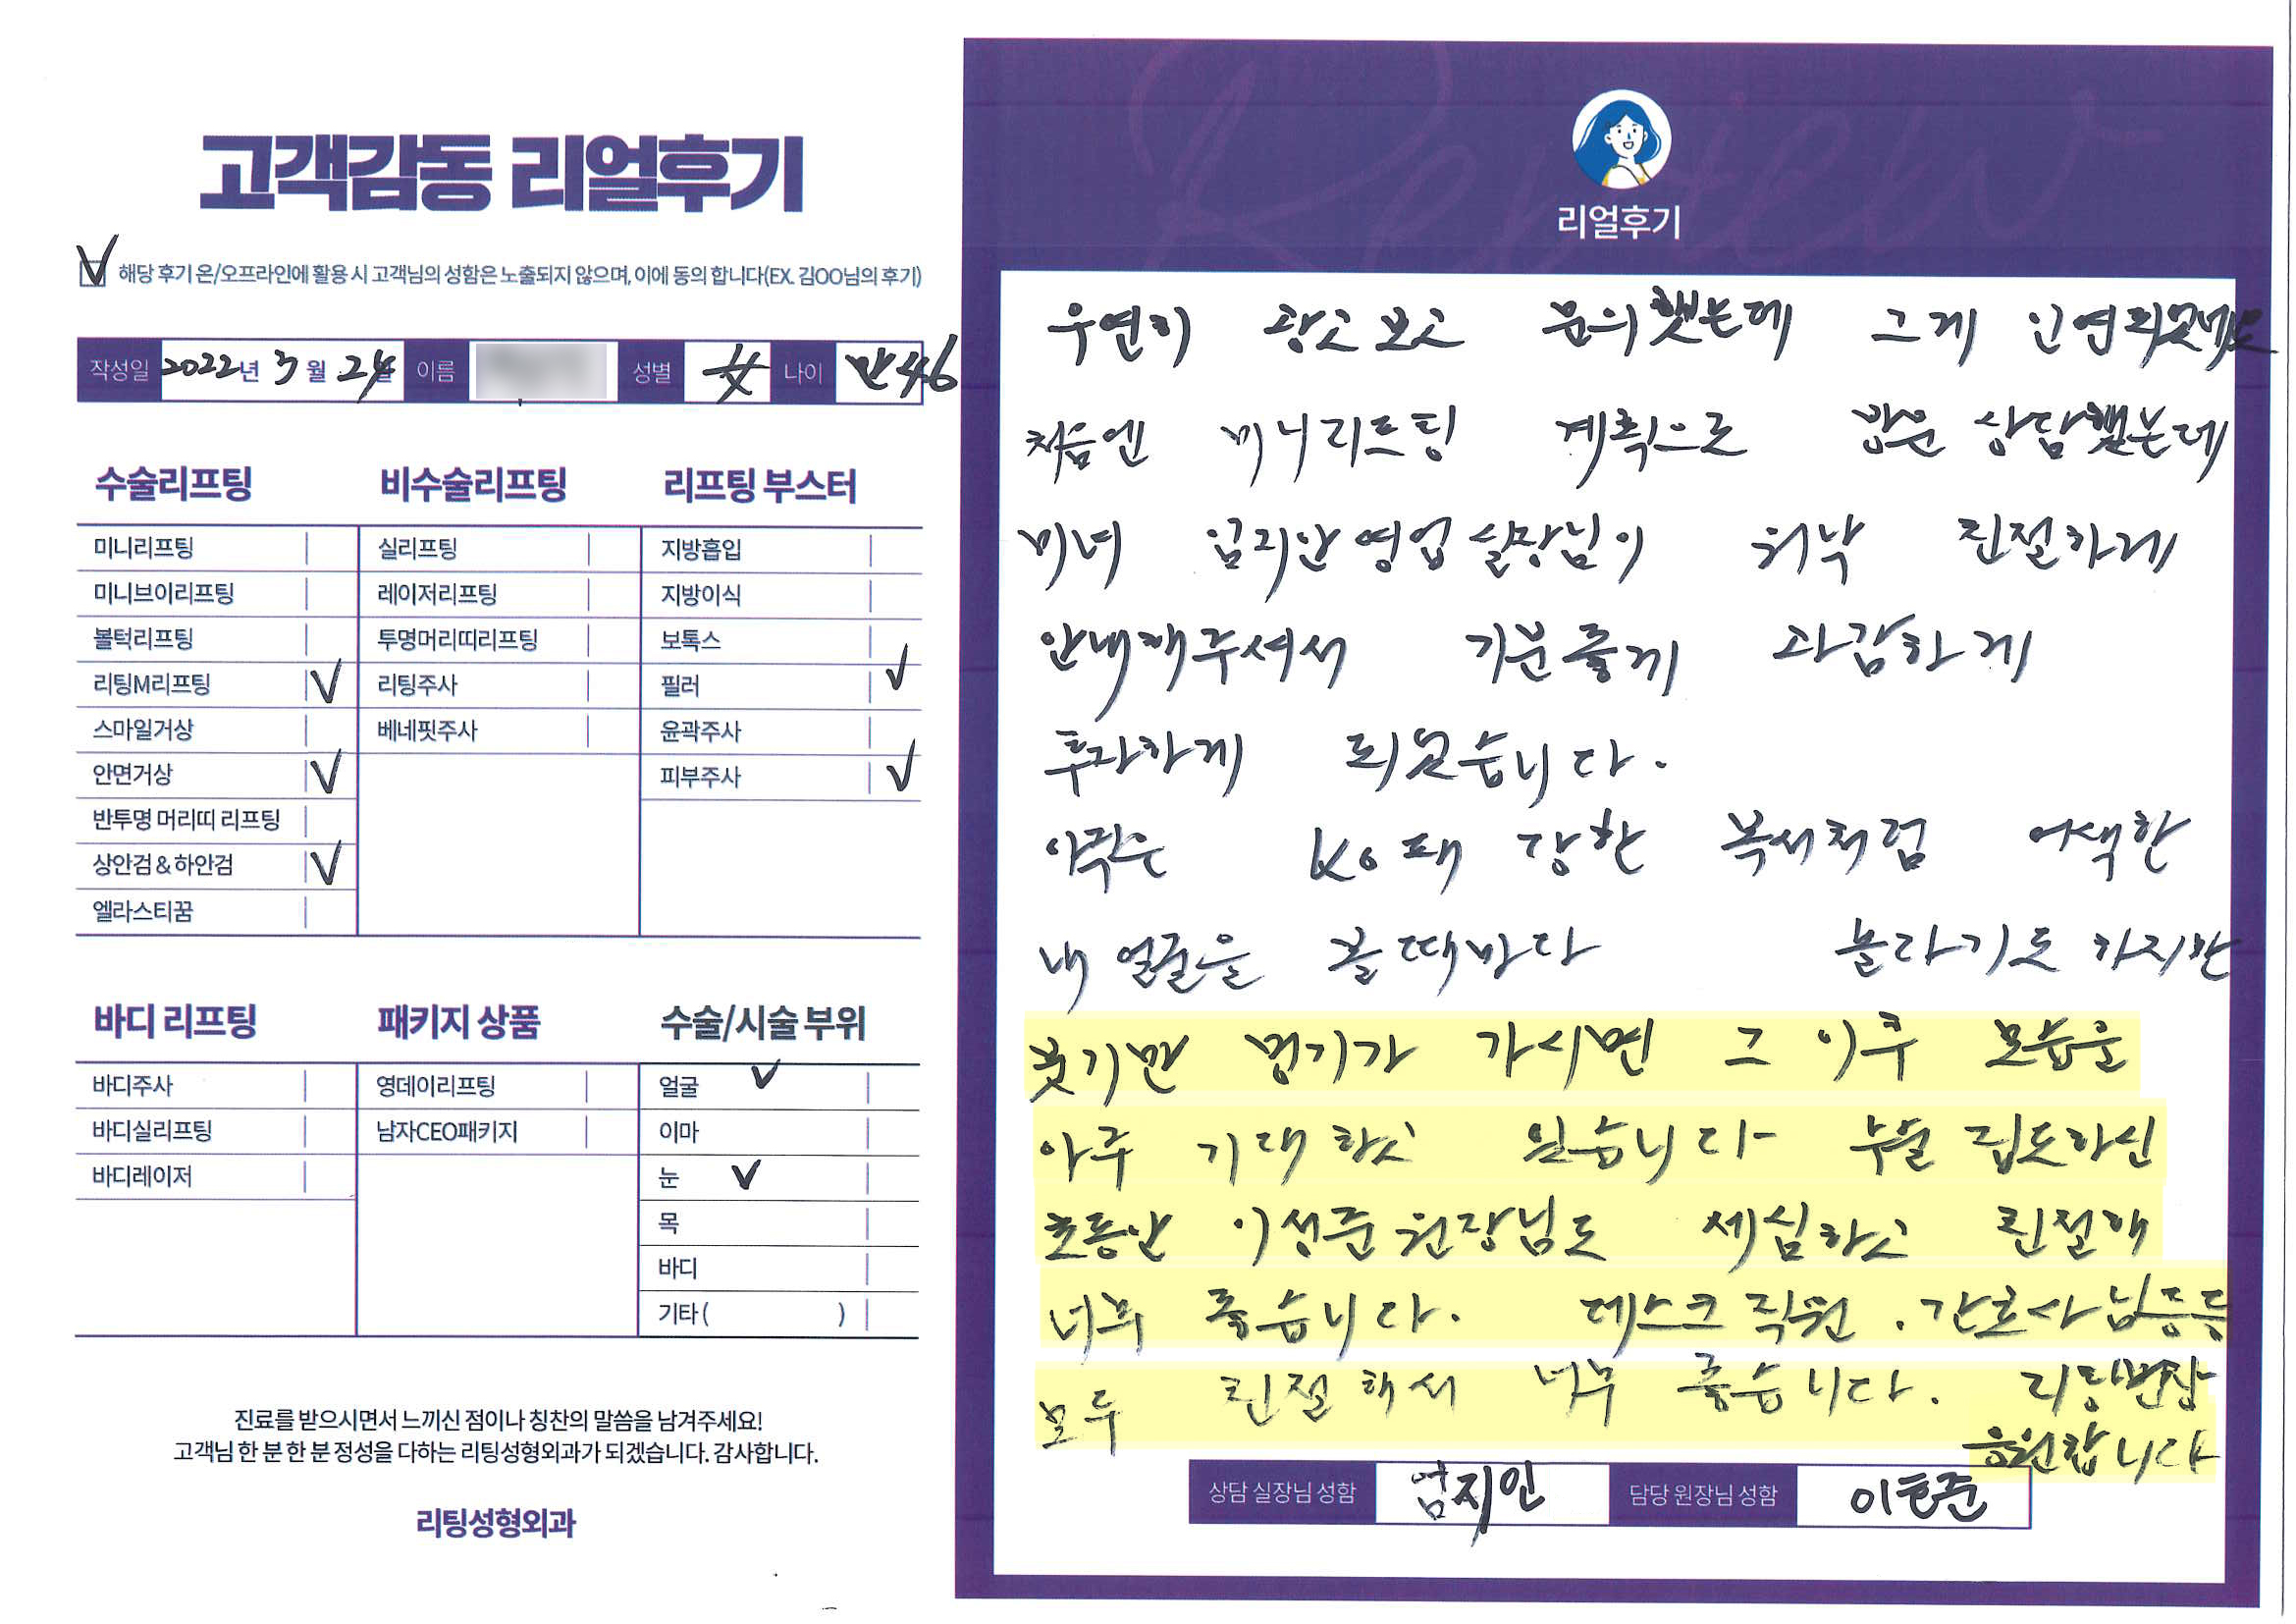 고객감동 리얼후기
해당 후기 온/오프라인에 활용 시 고객님의 성함은 노출되지 않으며, 이에 동의 합니다(EX. 김OO님의 후기)
작성일 2022년 3월 24일 이름 성별 女 나이 만46
수술리프팅
미니리프팅
미니브이리프팅
볼턱리프팅
리팅M리프팅
스마일거상
안면거상
반투명 머리띠 리프팅
상안검 & 하안검
엘라스티꿈
비수술리프팅
실리프팅
레이저리프팅
투명머리띠리프팅
리팅주사
베네핏주사
리프팅 부스터
지방흡입
지방이식
보톡스
필러
윤곽주사
피부주사
바디 리프팅
바디주사
바디실리프팅
바디레이저
패키지 상품
영데이리프팅
남자CEO패키지
수술/시술 부위
얼굴
이마
눈
목
바디
기타 ( )
진료를 받으시면서 느끼신 점이나 칭찬의 말씀을 남겨주세요!
고객님 한 분 한 분 정성을 다하는 리팅성형외과가 되겠습니다. 감사합니다.
리팅성형외과
Review
리얼후기
우연히 광고보고 문의했는데 그게 인연되었네요
처음엔 미니리프팅 계획으로 방문 상담했는데
미녀 엄지안영업실장님이 워낙 친절하게
안내해주셔서 기분좋게 과감하게
투자하게 되었습니다.
아직은 KO패 당한 복서처럼 어색한
내 얼굴을 볼때마다 놀라기도 하지만
붓기만 멍기가 가시면 그 이후 모습은
아주 기대하고 있습니다 수술 집도하신
초동안 이성준원장님도 세심하고 친절해
너무 좋습니다. 데스크직원. 간호사님등등
모두 친절해서 너무 좋습니다. 리팅번창
응원합니다
상담 실장님 성함 엄지인 담당 원장님 성함